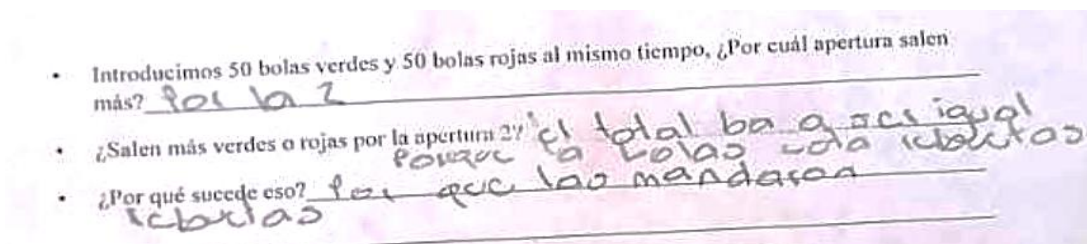 • Introducimos 50 bolas verdes y 50 bolas rojas al mismo tiempo, ¿Por cuál apertura salen
más? Por la 2
• ¿Salen más verdes o rojas por la apertura 2? el total ba a ser igual
porque la bolas
• ¿Por qué sucede eso? Por que las mandaron